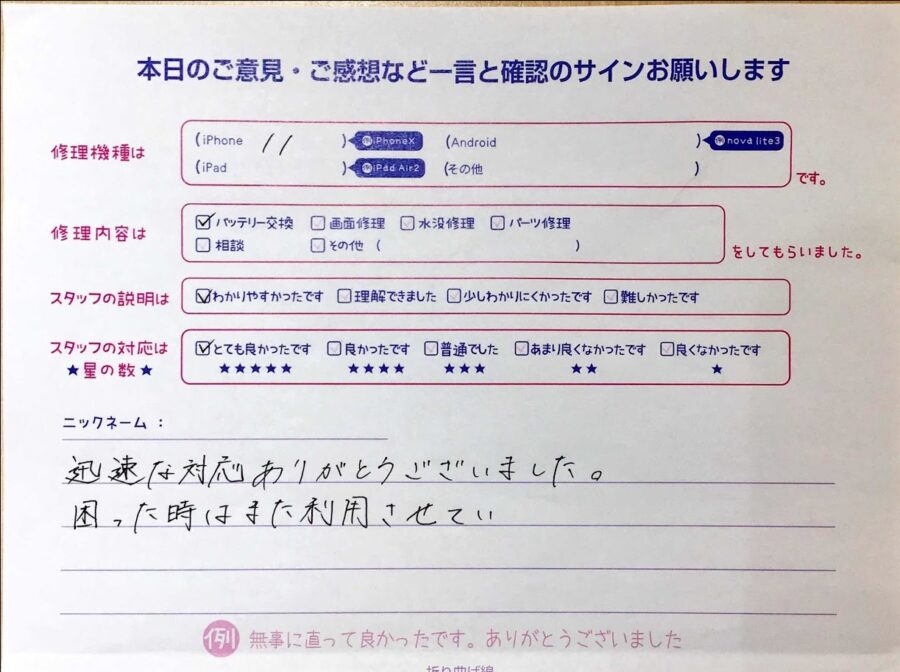 本日のご意見・ご感想など一言と確認のサインお願いします
修理機種は
(iPhone 11 ) iPhoneX (Android ) nova lite3
(iPad ) iPad Air2 (その他 )
です。
修理内容は
☑バッテリー交換 □画面修理 □水没修理 □パーツ修理
□相談 □その他 ( )
をしてもらいました。
スタッフの説明は
☑わかりやすかったです □理解できました □少しわかりにくかったです □難しかったです
スタッフの対応は
★星の数★
☑とても良かったです □良かったです □普通でした □あまり良くなかったです □良くなかったです
★★★★★ ★★★★ ★★★ ★★ ★
ニックネーム:
迅速な対応ありがとうございました。
困った時はまた利用させてい
例 無事に直って良かったです。ありがとうございました
折り曲げ線